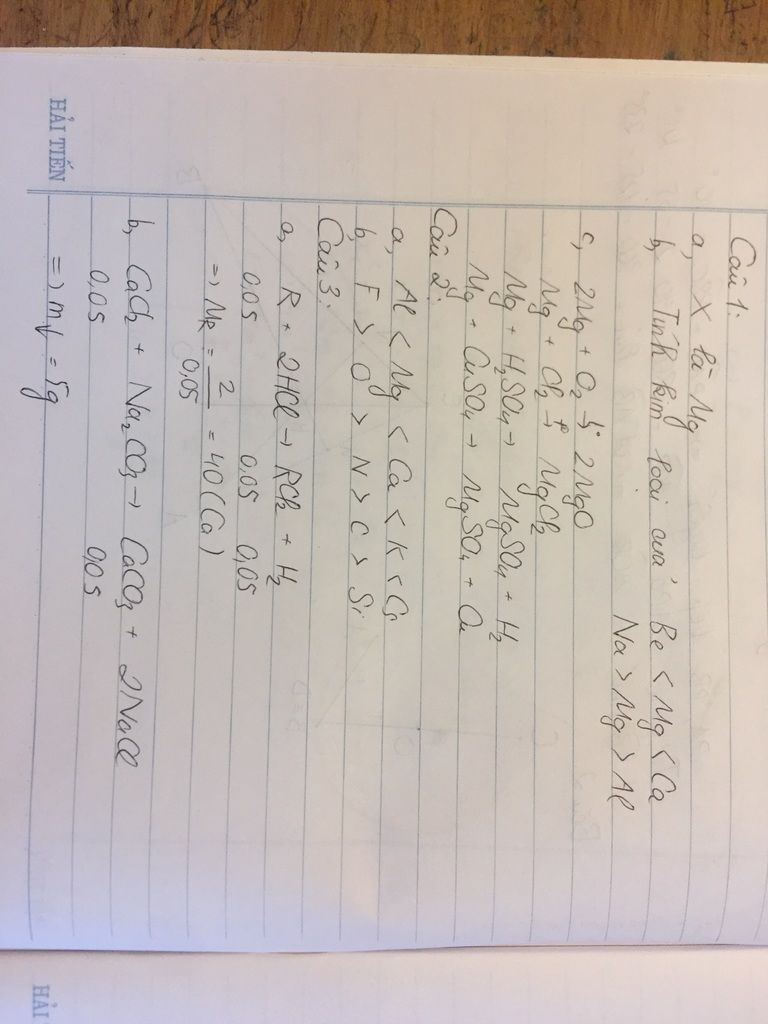 Câu 1:
a, X là Mg
b, Tính kim loại của Be < Mg < Ca
Na > Mg > Al
c, 2Mg + O2 t°→ 2MgO
Mg + Cl2 t°→ MgCl2
Mg + H2SO4 → MgSO4 + H2
Mg + CuSO4 → MgSO4 + Cu
Câu 2:
a, Al < Mg < Ca < K < Cs
b, F > O > N > C > Si
Câu 3:
a, R + 2HCl → RCl2 + H2
0,05 0,05 0,05
=> MR = 2/0,05 = 40 (Ca)
b, CaCl2 + Na2CO3 → CaCO3 + 2NaCl
0,05 0,05
=> m↓ = 5g
HẢI TIẾN
HẢI